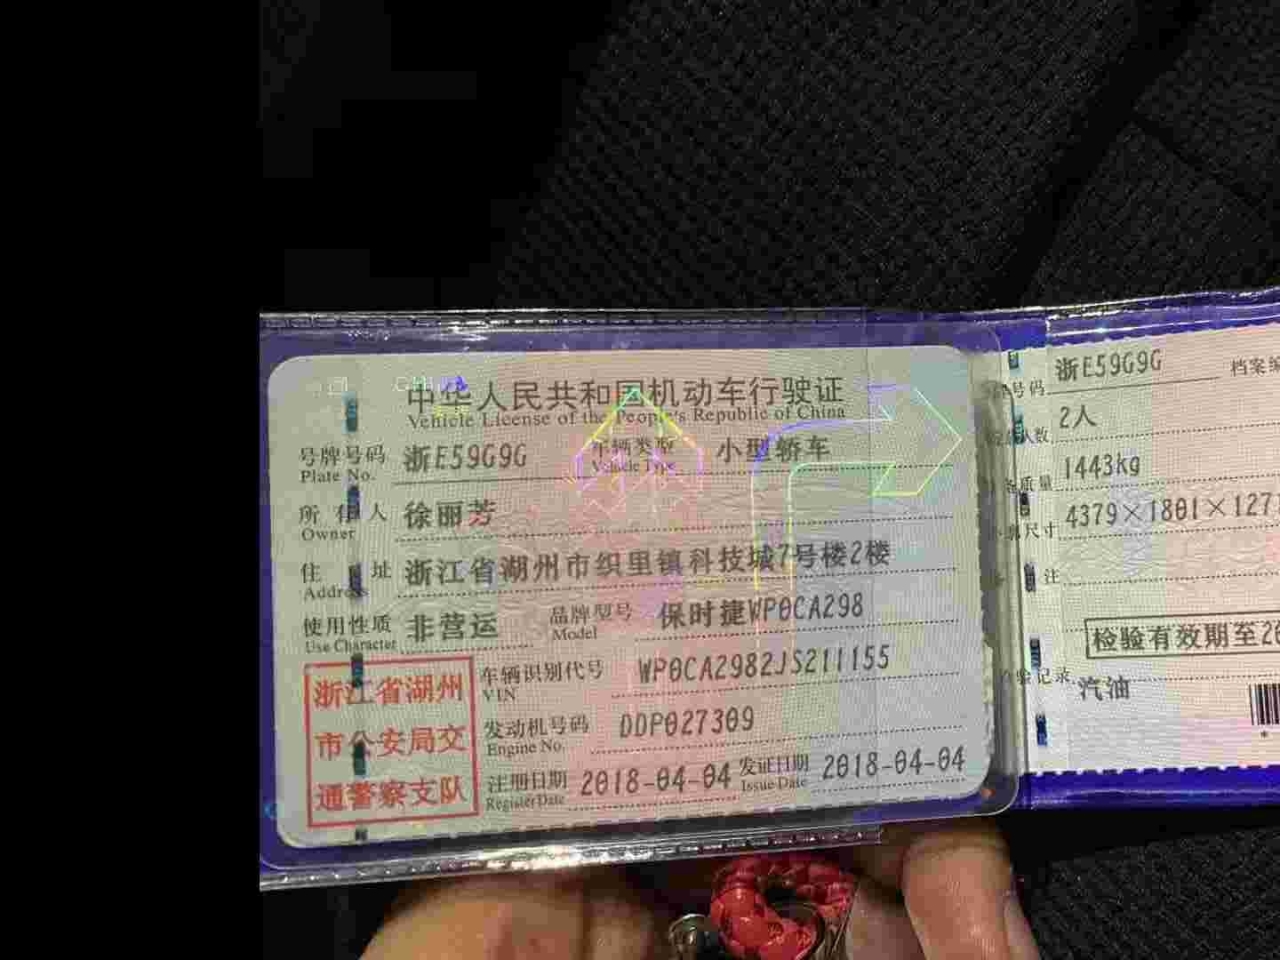 中华人民共和国机动车行驶证
Vehicle License of the People's Republic of China
号牌号码 浙E59G9G 车辆类型 小型轿车
Plate No. Vehicle Type
所有人 徐丽芳
Owner
住址 浙江省湖州市织里镇科技城7号楼2楼
Address
使用性质 非营运 品牌型号 保时捷WP0CA298
Use Character Model
浙江省湖州
市公安局交
通警察支队
车辆识别代号 WP0CA2982JS211155
VIN
发动机号码 DDP027309
Engine No.
注册日期 2018-04-04 发证日期 2018-04-04
Register Date Issue Date
号码 浙E59G9G 档案编
人数 2人
质量 1443kg
尺寸 4379×1801×127
注
检验有效期至20
验记录
汽油